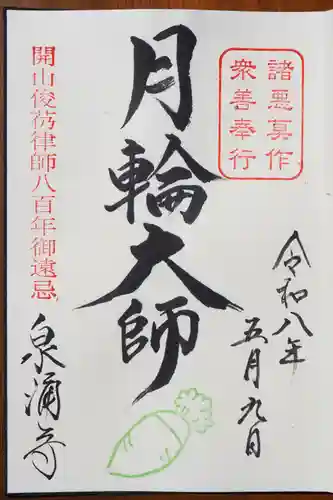 諸悪莫作
衆善奉行
令和八年
五月九日
月輪大師
開山俊芿律師八百年御遠忌
泉涌寺